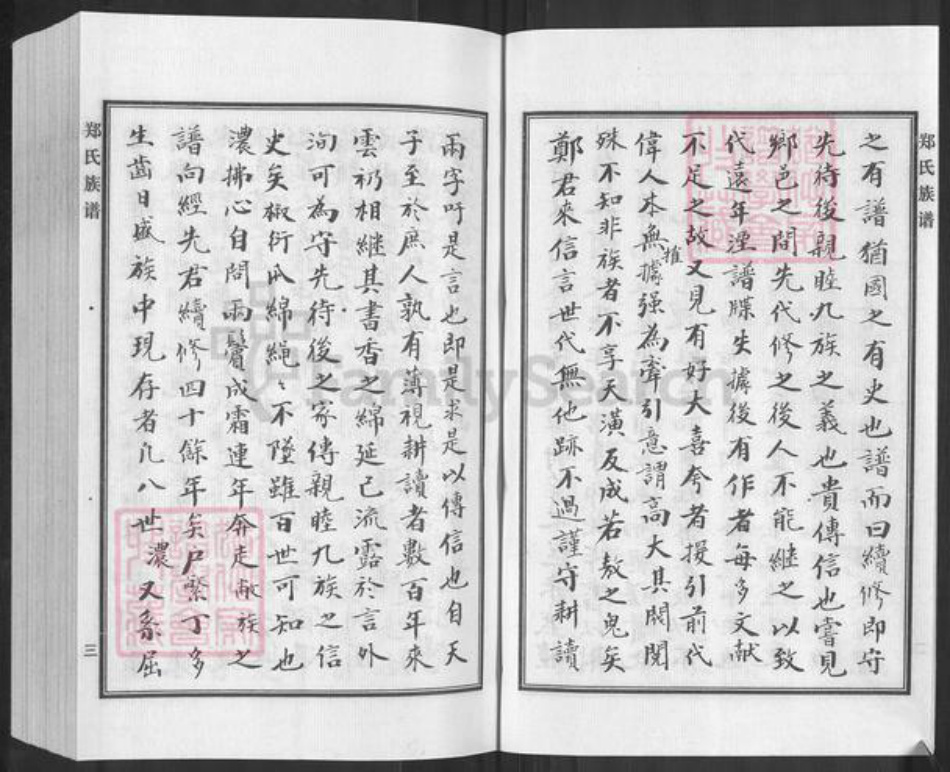 郑氏族谱
之有譜猶國之有史也譜而曰續修即守
先待後親睦九族之義也貴傳信也嘗見
鄉邑之間先代修之後人不能繼之以致
代遠年湮譜牒失據後有作者每多文献
不足之故又見有好大喜夸者援引前代
偉人本無據强為牽引意謂高大其閥閱
推
殊不知非族者不享天潢反成若敖之鬼矣
鄭君來信言世代無他跡不過謹守耕讀
郑氏族谱
三
兩字吁是言也即是求是以傳信也自天
子至於庶人孰有薄視耕讀者數百年來
雲礽相繼其書香之綿延已流露於言外
洵可為守先待後之家傳親睦九族之信
史矣椒衍瓜綿繩〻不墜雖百世可知也
濃拂心自問兩鬢成霜連年奔走敝族之
譜向經先君續修四十餘年矣戶繁丁多
生齒日盛族中現存者凡八世濃又系屈
FamilySearch